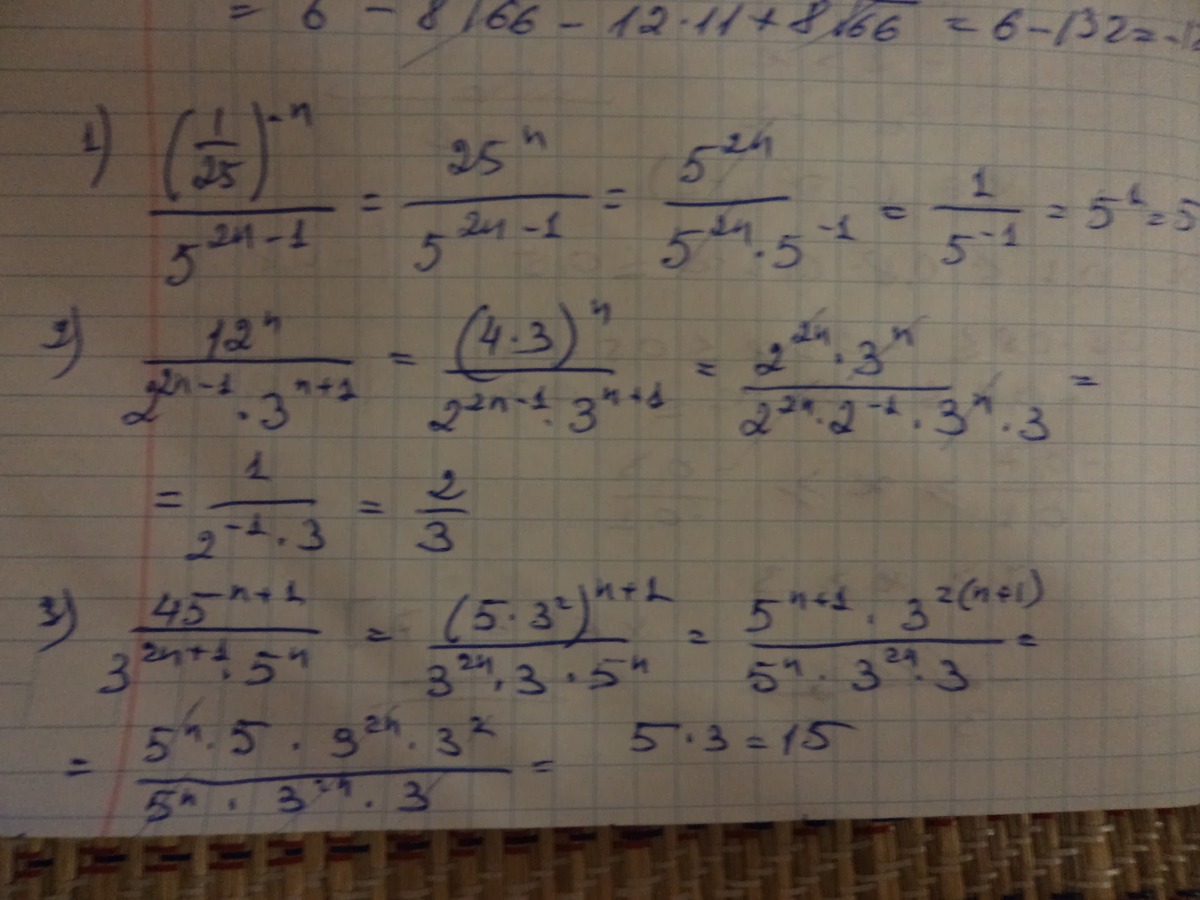 = 6 - 8√66 - 12·11 + 8√66 = 6 - 132 =
1) (1/25)^(-n) / 5^(2n-1) = 25^n / 5^(2n-1) = 5^(2n) / (5^(2n)·5^(-1)) = 1 / 5^(-1) = 5^1 = 5
2) 12^n / (2^(2n-1)·3^(n+1)) = (4·3)^n / (2^(2n-1)·3^(n+1)) = (2^(2n)·3^n) / (2^(2n)·2^(-1)·3^n·3) =
= 1 / (2^(-1)·3) = 2/3
3) 45^(n+1) / (3^(2n+1)·5^n) = (5·3^2)^(n+1) / (3^(2n)·3·5^n) = (5^(n+1)·3^(2(n+1))) / (5^n·3^(2n)·3) =
= (5^n·5·3^(2n)·3^2) / (5^n·3^(2n)·3) = 5·3 = 15